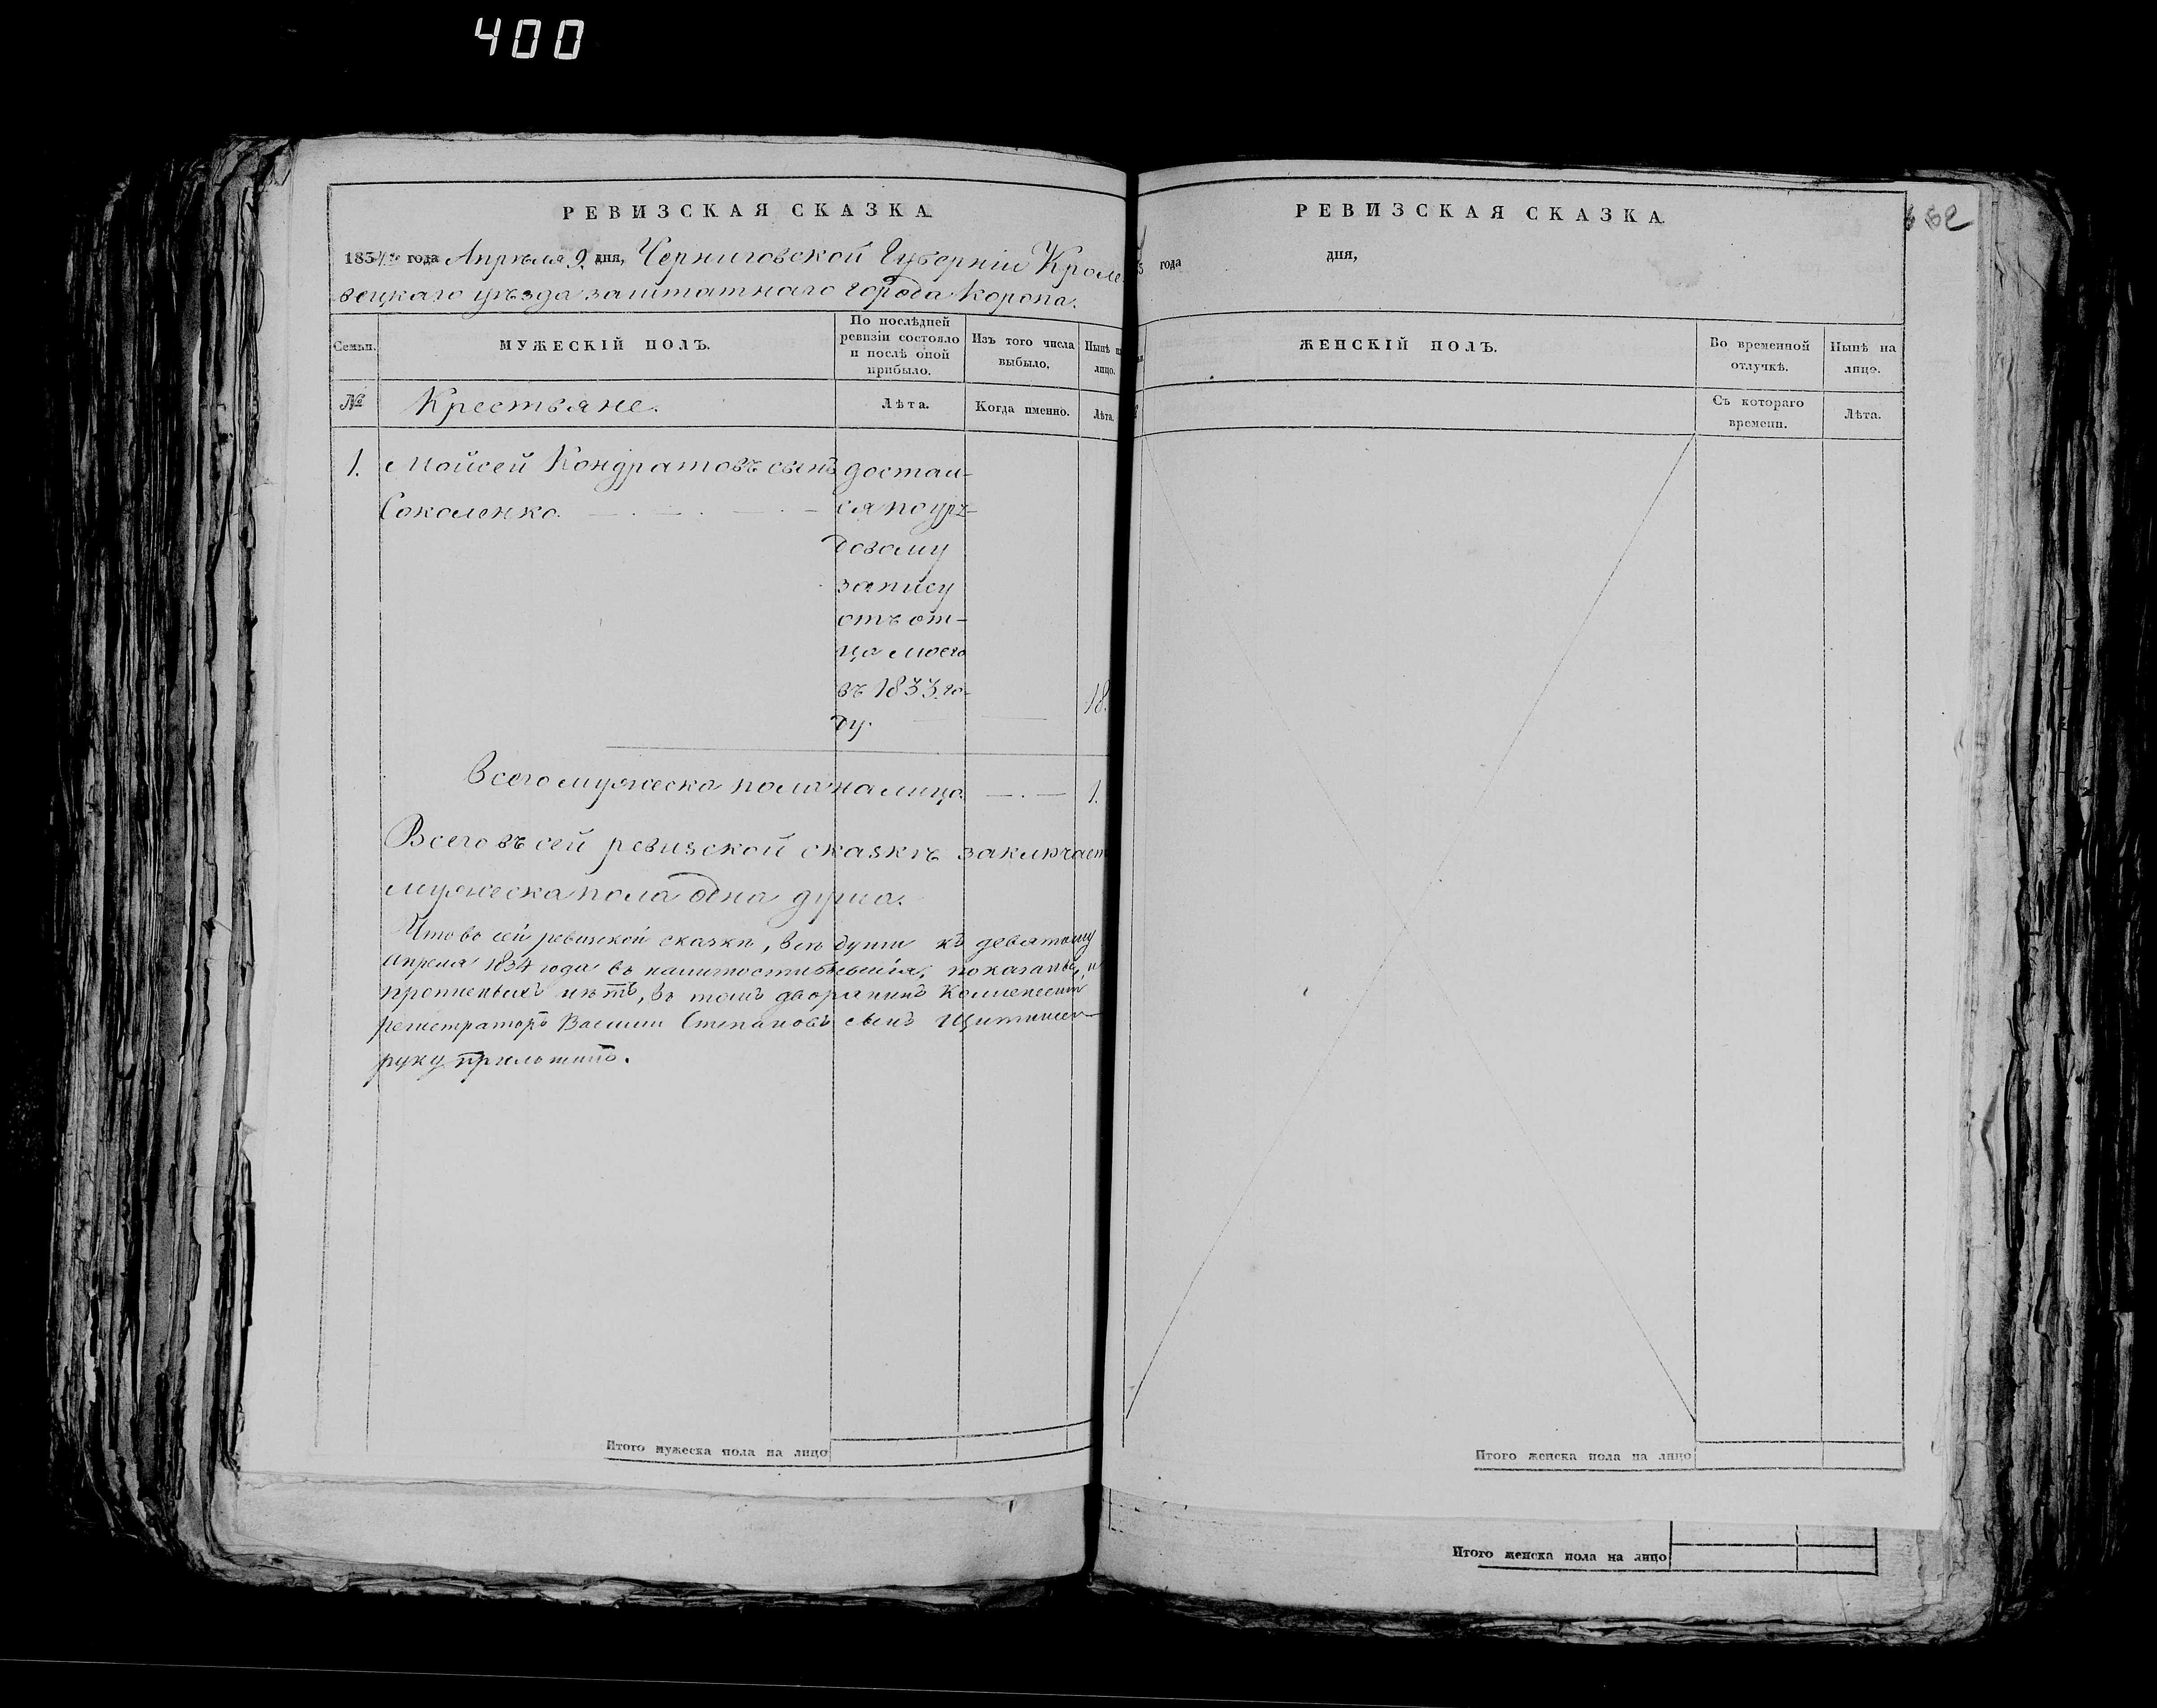 400
РЕВИЗСКАЯ СКАЗКА
1834го года Апрѣля 9. дня, Черниговской Губерніи Кроле
вецкаго уѣзда заштатнаго города Коропа.
Семьи.
МУЖЕСКІЙ ПОЛЪ.
По послѣдней
ревизіи состояло
и послѣ оной
прибыло.
Изъ того числа
выбыло.
Нынѣ
лицо.
№
Крестьяне.
Лѣта.
Когда именно.
Лѣта.
1. Мойсей Кондратовъ сынъ достал-
Соколенко.
ся
довому
запису
отъ от-
ца моего
въ 1833 го-
ду.
18.
Всего мужеска пола на лицо. 1.
Всего въ сей ревизской сказкѣ заключает
мужеска пола одна душа.
Что во сей ревизкой сказки, все души къ девятому
апреля 1834 года въ наличности бывшія, показаны, и
прописныхъ нѣтъ, въ томъ дворянинъ
регистраторъ Василий Степановъ сынъ
руку приложилъ.
Итого мужеска пола на лицо
РЕВИЗСКАЯ СКАЗКА
года дня,
ЖЕНСКІЙ ПОЛЪ.
Во временной
отлучкѣ.
Нынѣ на
лицо.
Съ котораго
времени.
Лѣта.
Итого женска пола на лицо
Итого женска пола на лицо